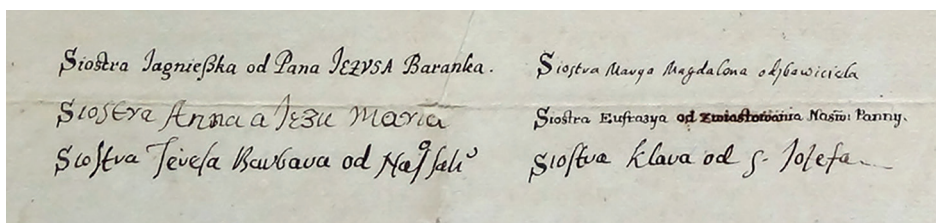 Siostra Jagnießka od Pana JĘZYSA Baranka.
Siostra Anna a Jęzu Maria
Siostra Teresa Barbara od
Siostra Marya Magdalena
Siostra Eufrazya od zwiastowania Naświ: Panny.
Siostra Klara od s. Jozefa